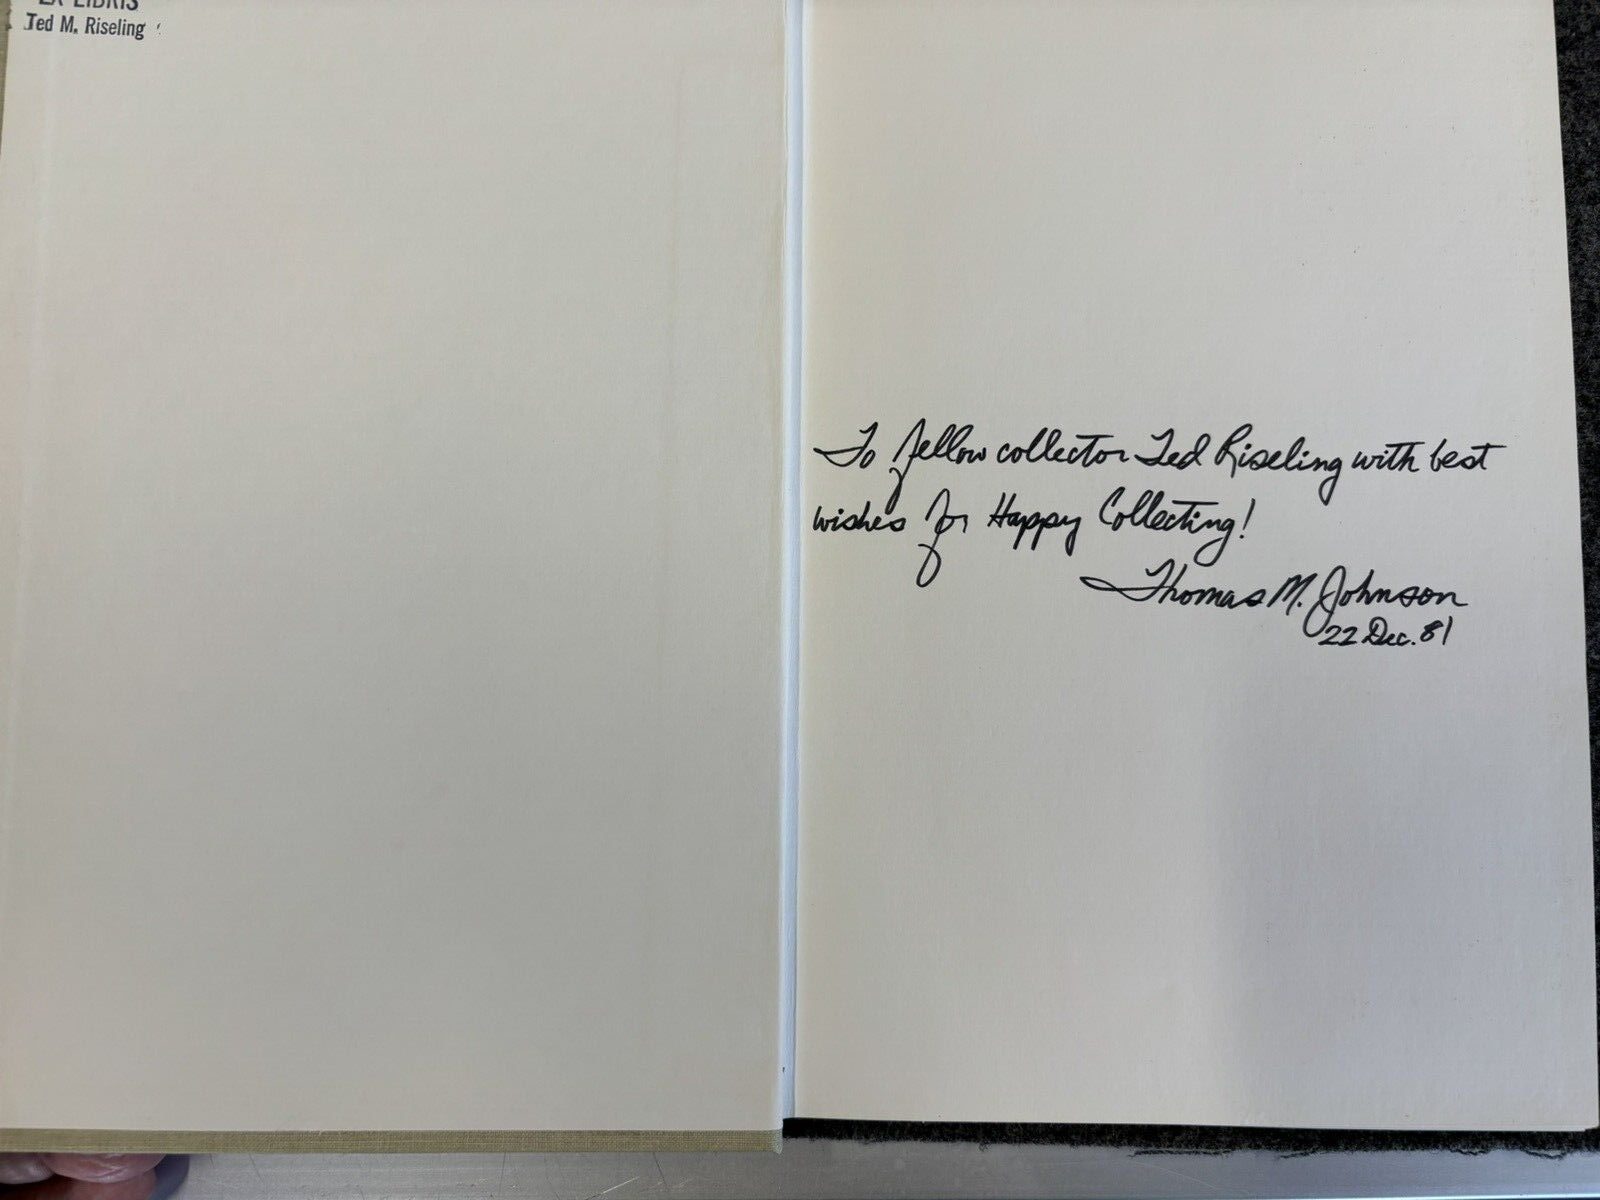 EX LIBRIS
Ted M. Riseling
To fellow collector Ted Riseling with best
wishes for Happy Collecting!
Thomas M. Johnson
22 Dec. 81